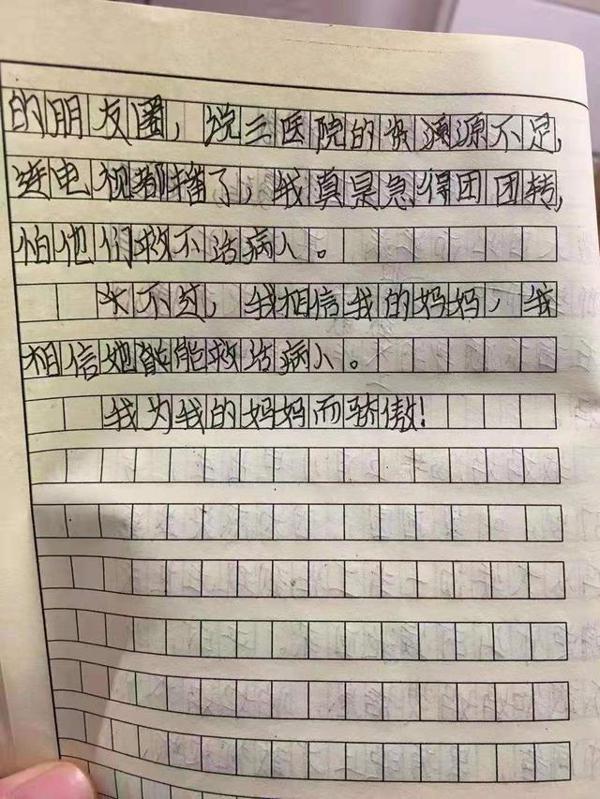 的朋友圈，说三医院的资源不足，
连电视都播了，我真是急得团团转，
怕他们救不活病人。
不过，我相信我的妈妈，我
相信她能救活病人。
我为我的妈妈而骄傲！